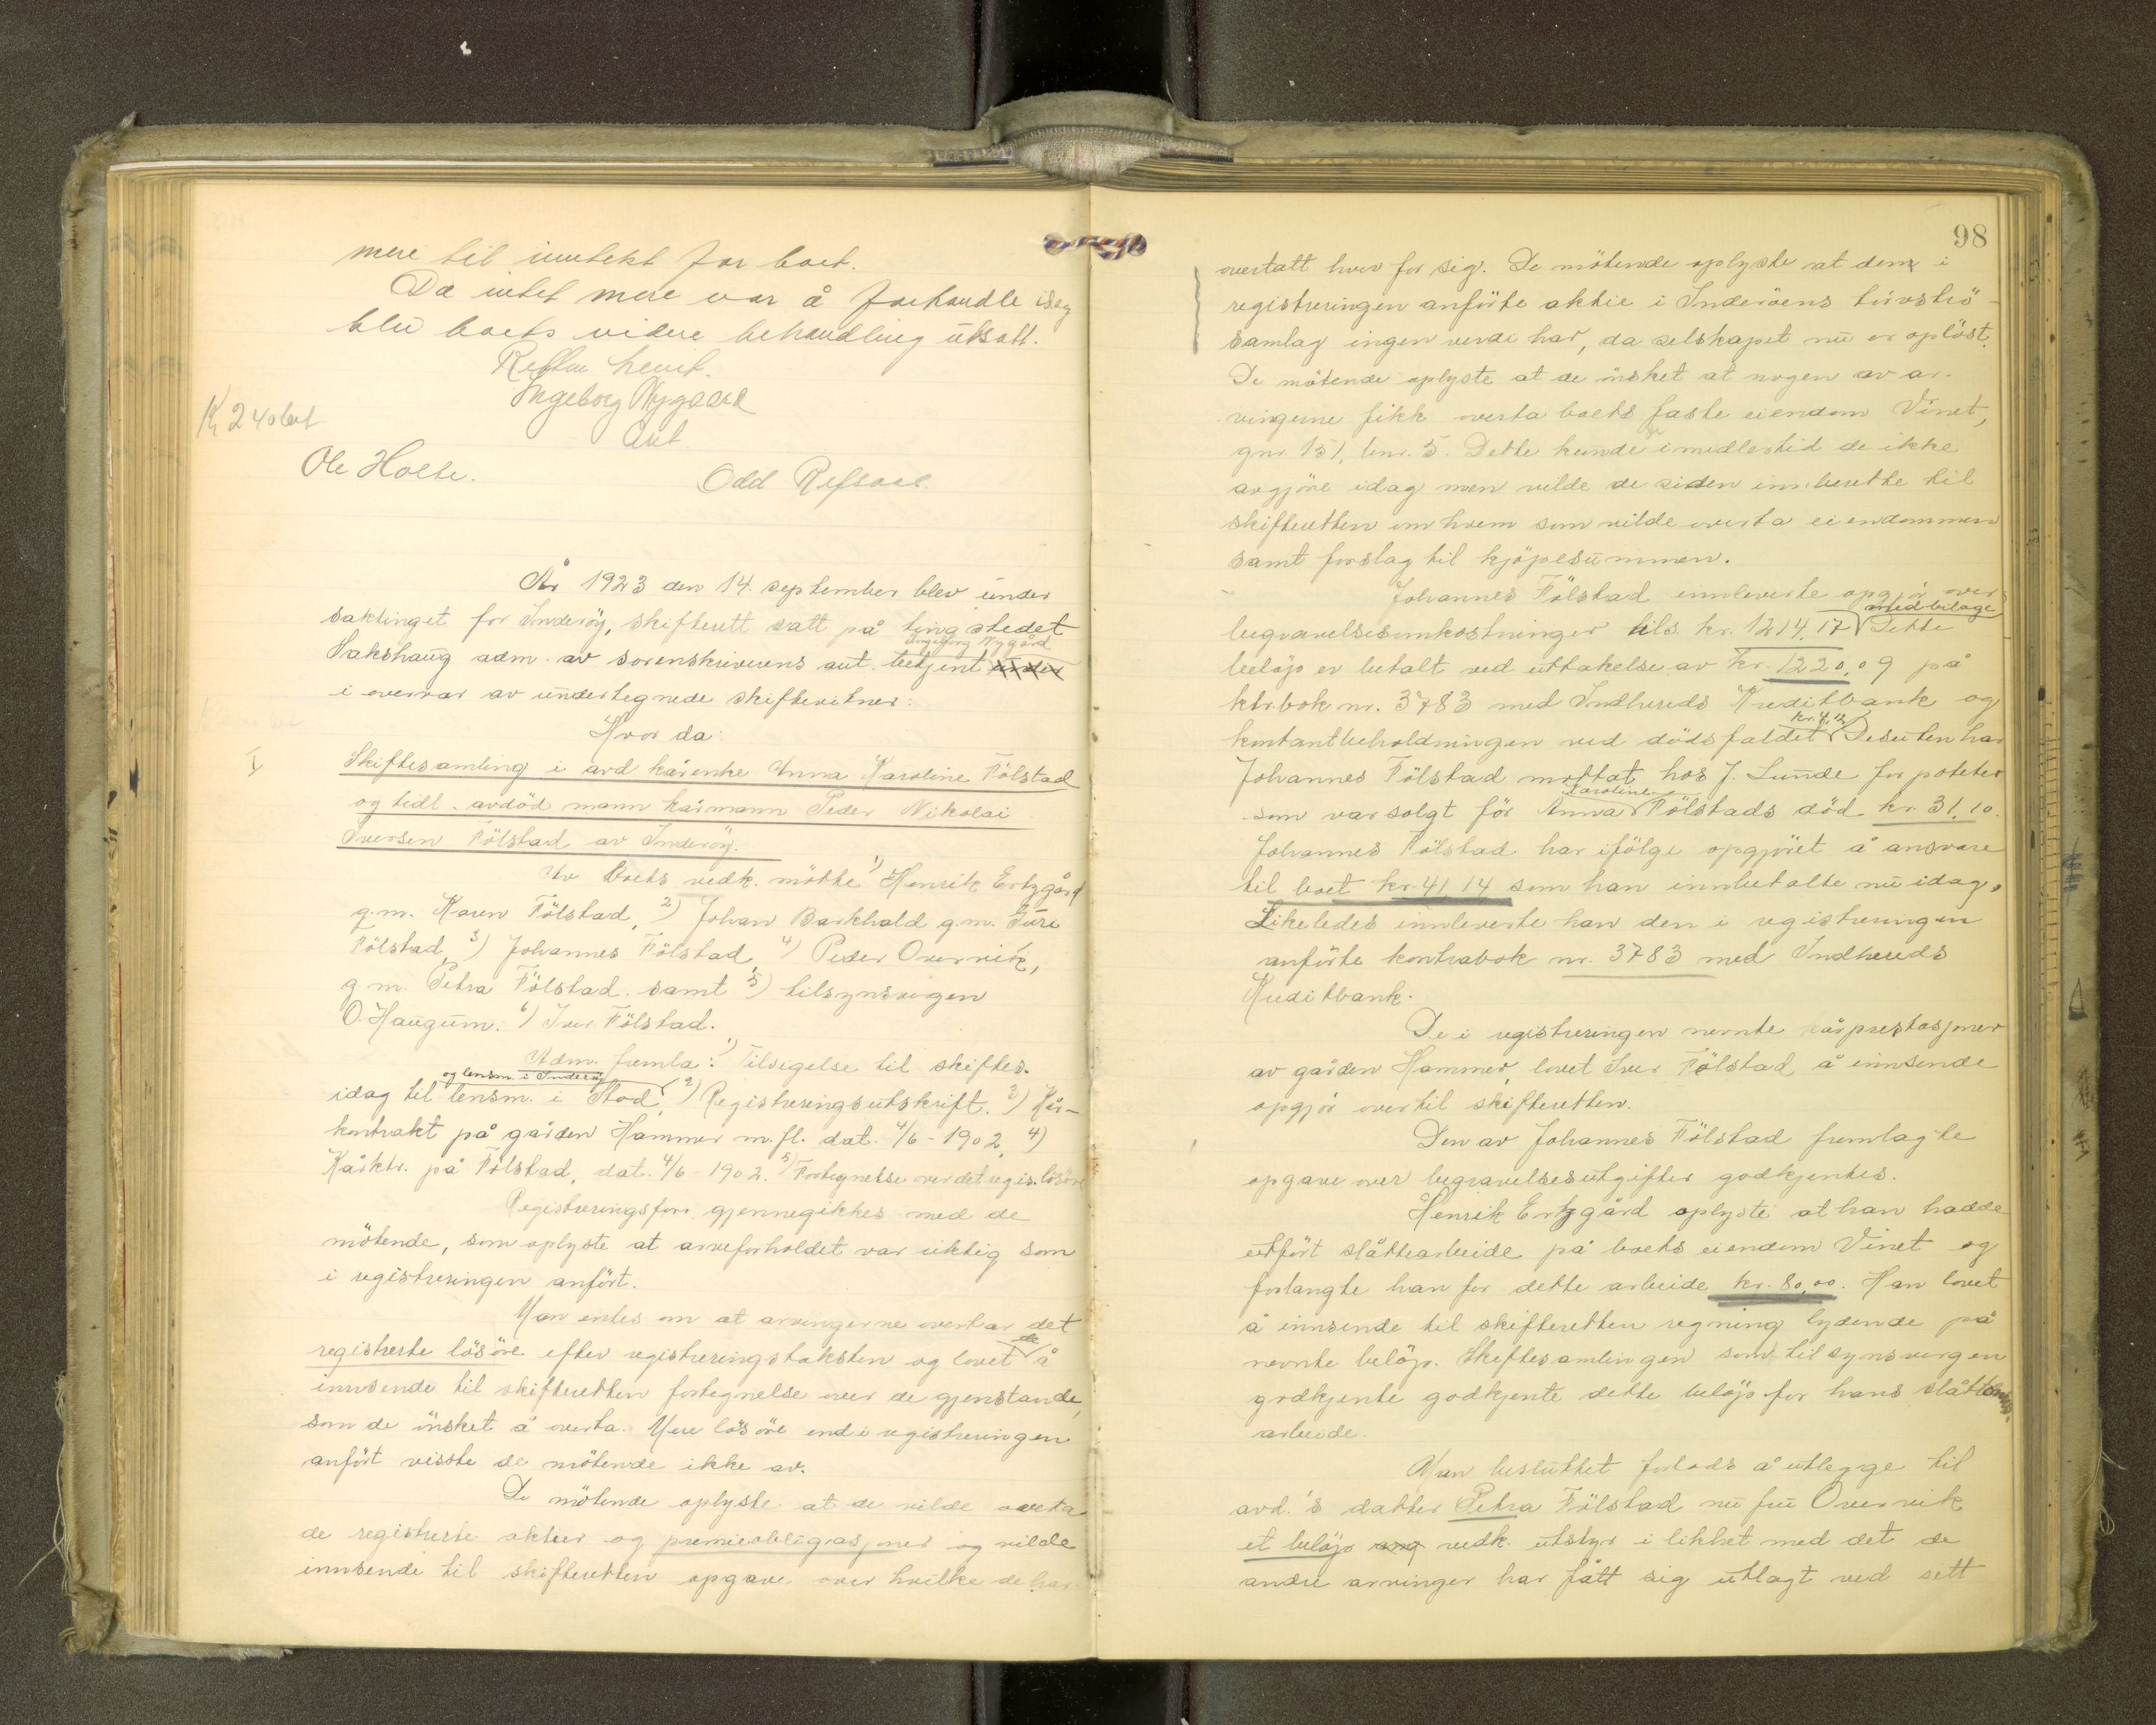 mere til inntekt for boet.
Da intet mere var å forhandle idag
blev boets videre behandling utsatt.
Retten hevet.
Ingeborg Nygaard
Aut.
Kr 2 40 bet
Ole Holte.
Odd Refsaas.
År 1923 den 14. september blev under
saktinget for Inderöy, skifterett satt på tingstedet
Ingeborg Nygård
Sakshaug adm. av sorenskriverens aut. betjent
i overvær av undertegnede skiftevitner:
Hvor da:
I
Skiftesamling i avd kårenke Anna Karoline Fölstad
og tidl. avdöd mann kårmann Peder Nikolai
Iversen Fölstad av Inderöy.
Av boets vedk. mötte 1) Henrik Ertzgård
g.m. Karen Fölstad, 2) Johan Barkhald g.m. Guri
Fölstad, 3) Johannes Fölstad, 4) Peder Overvik,
g.m. Petra Fölstad. samt 5) tilsynsvergen
O. Haugum. 6) Iver Fölstad.
Adm. fremla: 1) Tilsigelse til skiftes.
og lensm. i Inderöy
idag til lensm. i Stod. 2) Registreringsutskrift. 3) Kår-
kontrakt på gården Hammer m.fl. dat. 4/6 - 1902, 4)
Kårktr. på Fölstad, dat. 4/6 - 1902. 5) Fortegnelse over det regis. lösöre
Registreringsforr. gjennegikkes med de
mötende, som oplyste at arveforholdet var riktig som
i registreringen anfört.
Man entes om at arvingerne overtar det
de
registrerte lösöre efter registreringstaksten og lovet å
innsende til skifteretten fortegnelse over de gjenstande,
som de önsket å overta. Mere lösöre end i registreringen
anfört visste de mötende ikke av.
De mötende oplyste at de vilde overta
de registrerte aktier og premieobligasjoner og vilde
innsende til skifteretten opgave over hvilke de har
98
overtatt hver for sig. De mötende oplyste at den i
registreringen anförte aktie i Inderöens torvströ-
samlag ingen verdi har, da selskapet nu er oplöst.
De mötende oplyste at de önsket at nogen av ar-
vingerne fikk overta boets faste eiendom Vinet,
gnr. 131, bnr. 5. Dette kunde imidlertid de ikke
avgjöre idag men vilde de siden innberette til
skifteretten om hvem som vilde overta eiendommen
samt forslag til kjöpesummen.
Johannes Fölstad innleverte opgjör over
med bilage
begravelsesomkostninger tils. kr. 1214,17 Dette
belöp er betalt ved uttakelse av kr. 1220,09 på
ktr.bok nr. 3783 med Indhereds Kreditbank og
kr. 4,12
kontantbeholdningen ved dödsfaldet Desuten har
Johannes Fölstad mottat hos J. Lunde for poteter
Karoline
som var solgt för Anna Fölstads död kr. 31,10.
Johannes Fölstad har ifölge opgjöret å ansvare
til boet kr. 41 14 som han innbetalte nu idag,
Likeledes innleverte han den i registreringen
anförte kontrabok nr. 3783 med Indhereds
Kreditbank.
De i registreringen nevnte kårprestasjoner
av gården Hammer, lovet Iver Fölstad å innsende
opgjör over til skifteretten.
Den av Johannes Fölstad fremlagte
opgave over begravelsesutgifter godkjentes.
Henrik Ertzgård oplyste at han hadde
utfört slåttarbeide på boets eiendom Vinet og
forlangte han for dette arbeide kr. 80,00. Han lovet
å innsende til skifteretten regning lydende på
nevnte belöp. Skiftesamlingen som tilsynsvergen
godkjente godkjente dette belöp for hans slått
arbeide.
Man besluttet forlods å utlegge til
avd.'s datter Petra Fölstad nu fru Overvik
et belöp vedk. utstyr i likhet med det de
andre arvinger har fått sig utlagt ved sett